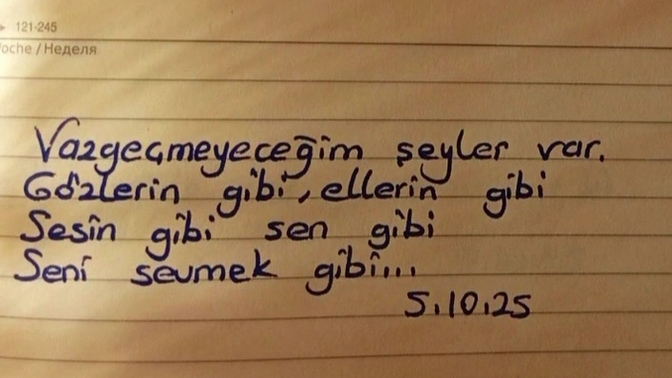 121-245
oche / Неделя
Vazgeçmeyeceğim şeyler var.
Gözlerin gibi, ellerin gibi
Sesin gibi sen gibi
Seni sevmek gibi...
5.10.25